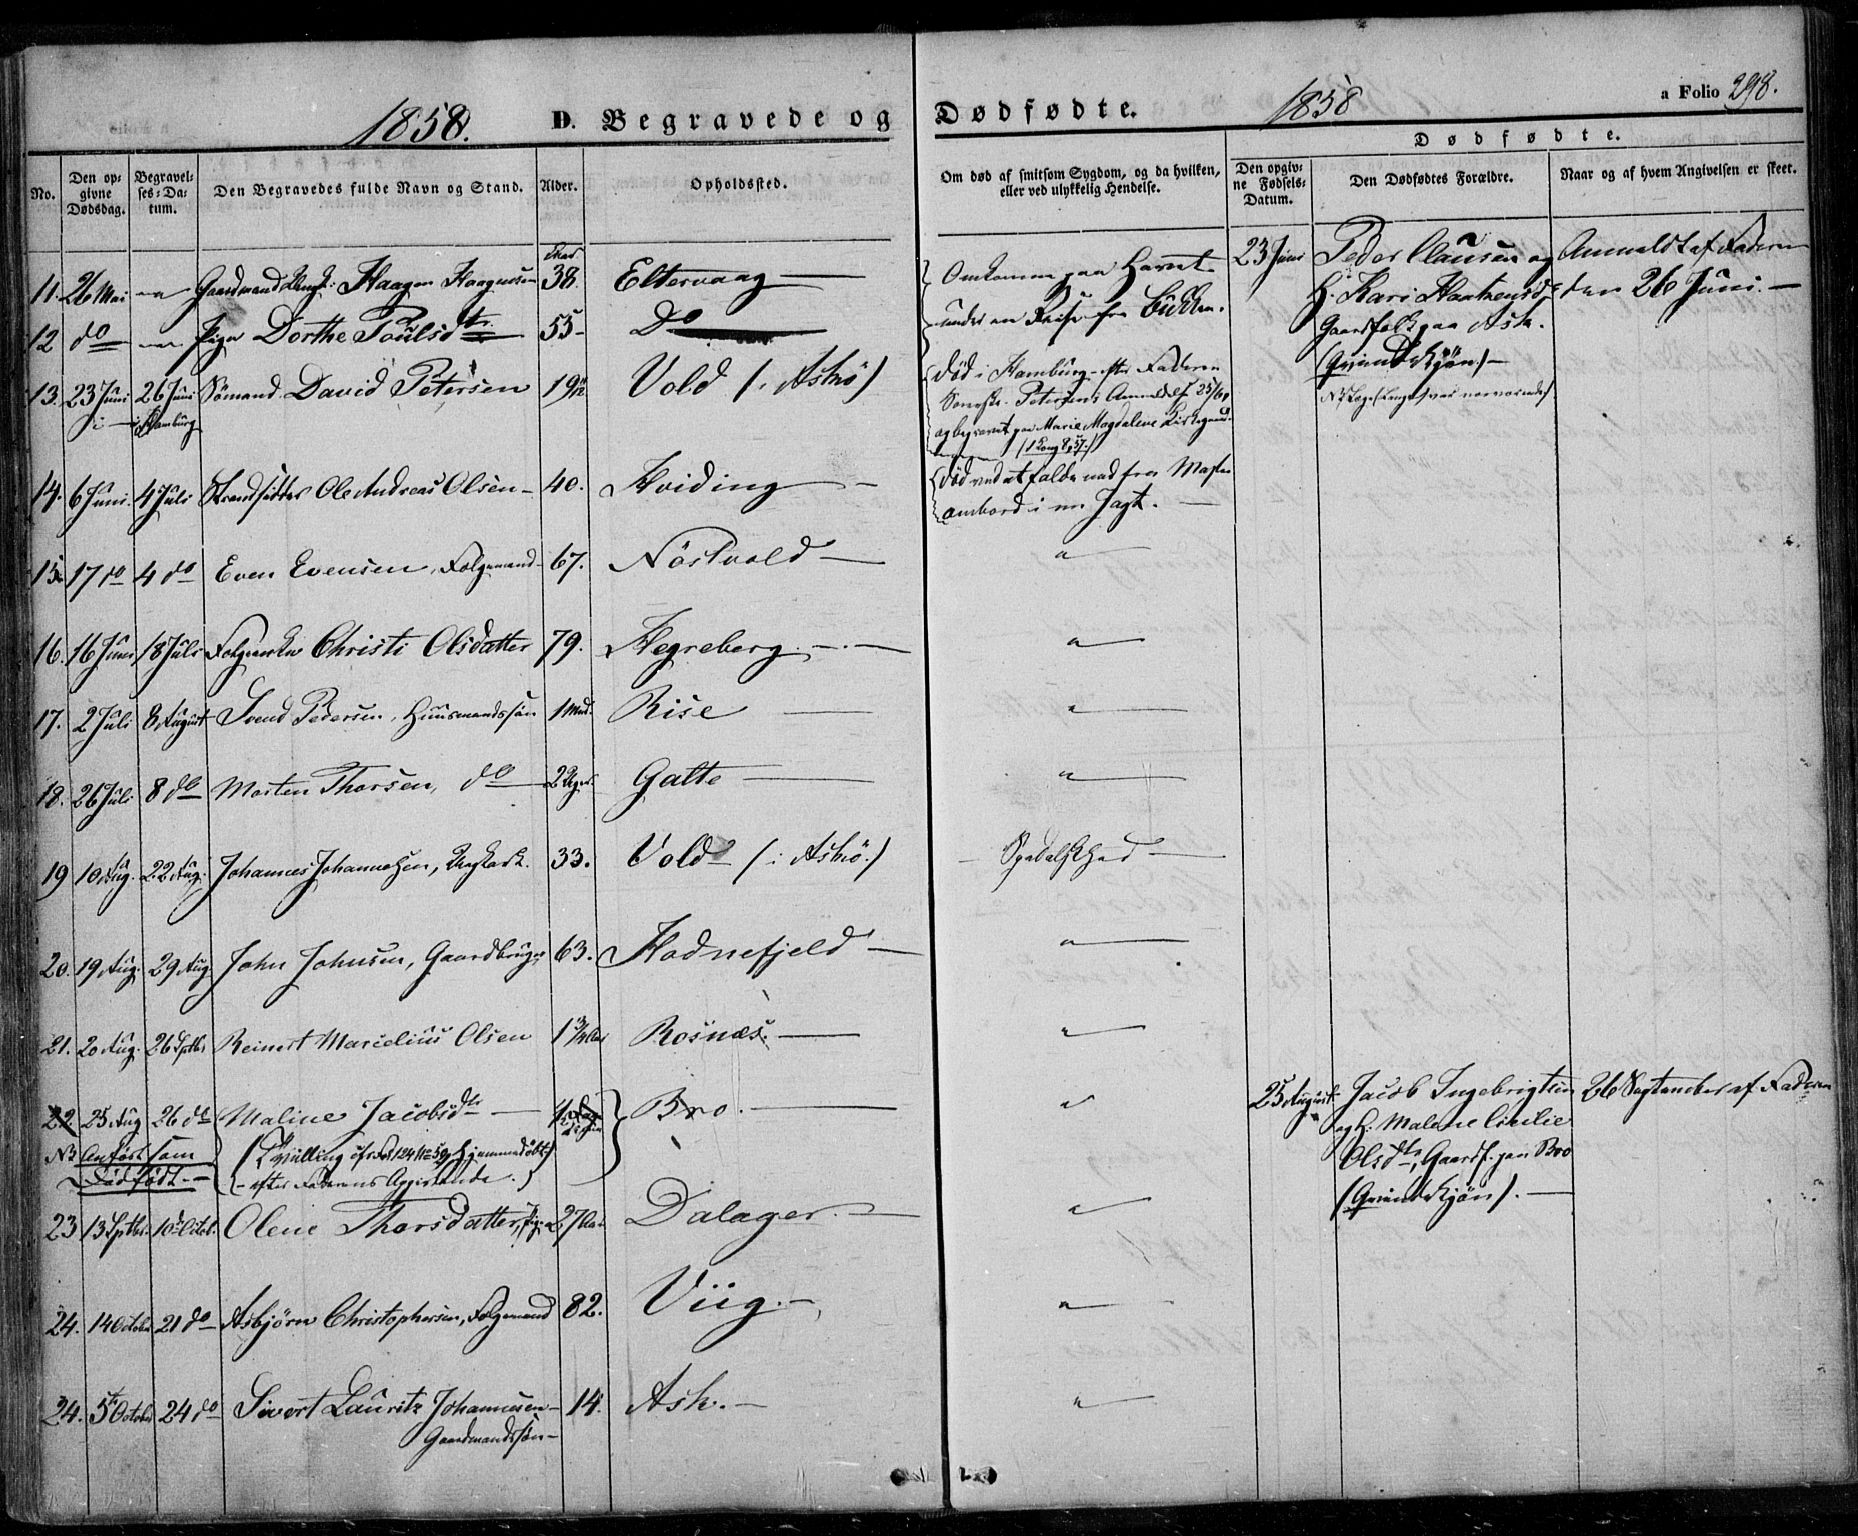 1858.
D. Begravede og
Dødfødte.
1858
a Folio 298.
No.
Den opgivne Dødsdag.
Begravelses-Datum.
Den Begravedes fulde Navn og Stand.
Alder.
Opholdssted.
Om død af smitsom Sygdom, og da hvilken, eller ved ulykkelig Hendelse.
Dødfødte.
Den opgivne Fødsels-Datum.
Den Dødfødtes Forældre.
Naar og af hvem Angivelsen er skeet.
11. 26 Mai Haagen Haagensen 38. Eltervaag
Omkomne paa Havet
under en Reise fra
12 do Pige Dorthe Poulsdtr. 55 Do
23 Juni Peder Clausen og
h. Kari
Gaardfolk paa Ask.
(Qvindekjøn)
Anmeldt af Faderen
den 26 Juni.
13. 23 Juni 26 Juni Sømand David Petersen 19 Vold (i Askø)
i Hamburg
Død i Hamburg efter Faderen
Petersens
og begravet paa Marie Magdalene Kirkegaard
14. 6 Juni 4 Juli Strandsidder Ole Andreas Olsen 40. Hviding
Død ved at falde ned fra Masten
ombord i en Jagt.
15. 17 do 4 do Even Evensen, Folgemand 67. Nöstvold
16. 16 Juni 18 Juli Christi Olsdatter 79. Hegreberg
17. 2 Juli 8 August Svend Pedersen, Huusmandssøn 1 Rise
18. 26 Juli 8 do Morten Thorsen, do 2 Galte
19 10 Aug. 22 Aug. Johannes Johannesen, Ungkarl. 33. Vold (i Askø.) Spedalskhed
20. 19 Aug. 29 Aug John Johnsen, Gaardbruger 63. Hodnefjeld
21. 20 Aug. 26 Septbr Reinert Marselius Olsen 1 3/4 Aar Rosnæs.
22. 25 Aug 26 do Maline Jacobsdtr Bro.
NB Anført som
Dødfødt.
(Tvilling hjemmedøbt
efter Faderens Opgivende.)
25 August Jacob Ingebrigtsen
og h. Malene Cicilie
Olsdtr, Gaardf. paa Bro
(Qvindekjøn).
26 September af Faderen
23 13 Septbr. 10 Octob. Olene Thorsdatter, Pige 27 Aar Dalager.
24. 14 October 21 do Asbjørn Christophersen, Folgemand 82. Viig.
24. 5 October 24 do Sivert Lauritz Johannesen 14. Ask.
Gaardmandssøn